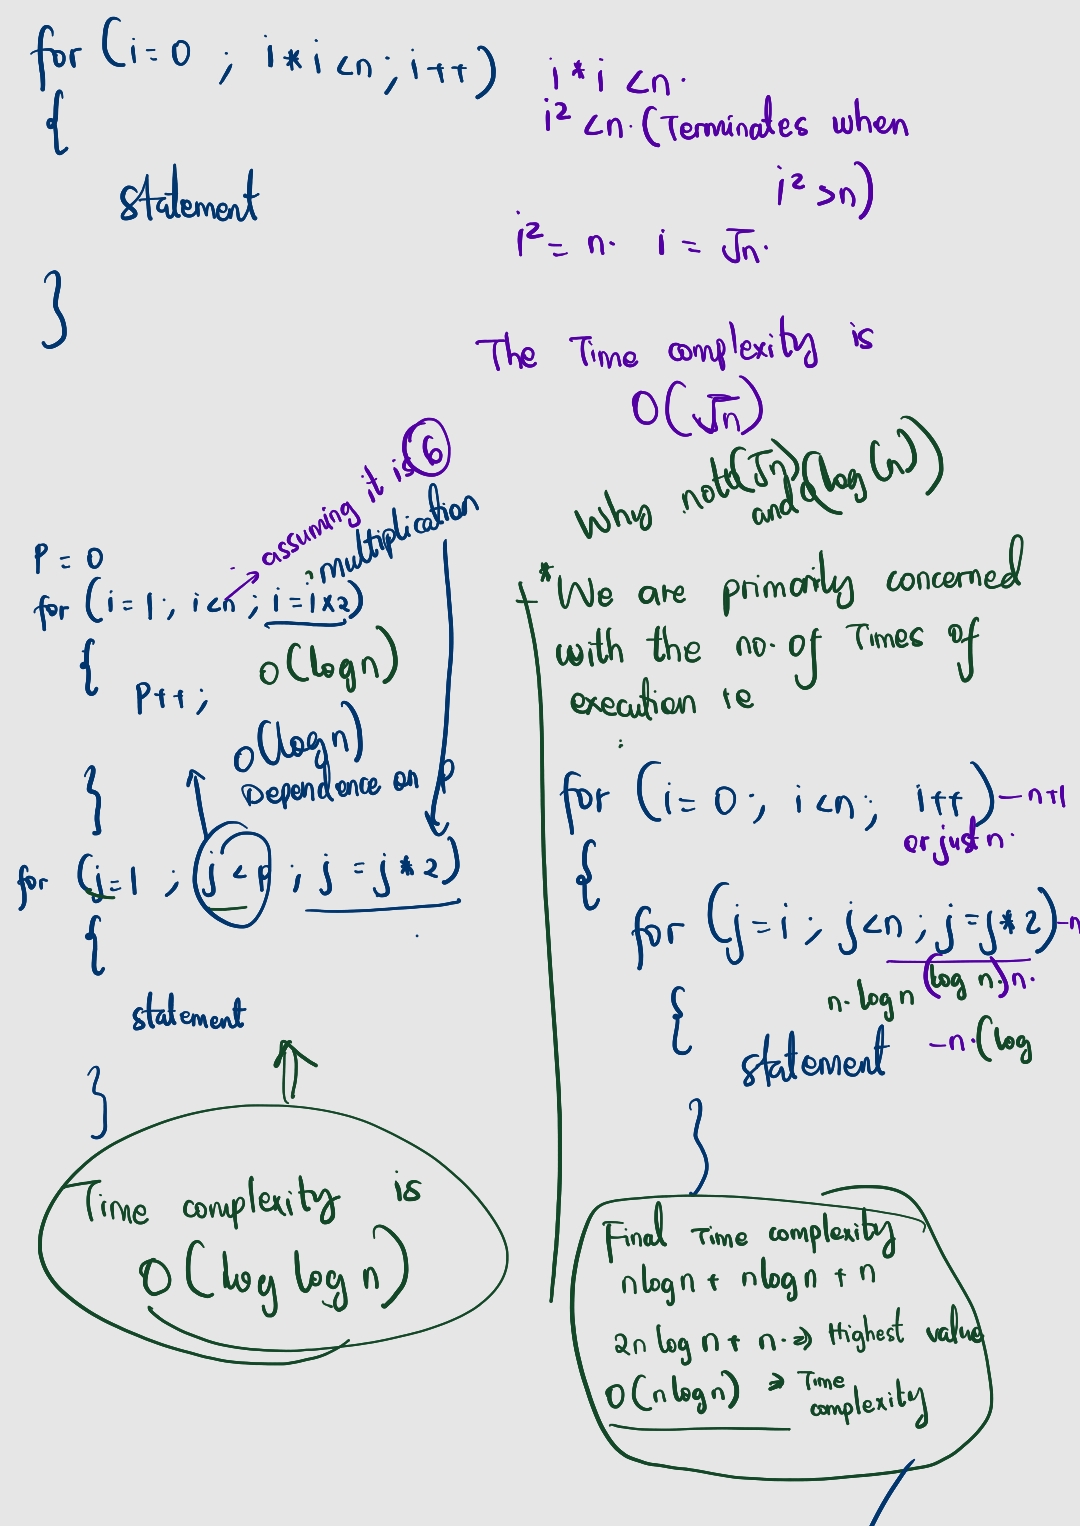 for (i=0 ; i*i <n ; i++)
{
statement
}
i*i <n.
i² <n. (Terminates when
i² >n)
i² = n. i = √n.
The Time complexity is
O(√n)
why not (√n)
and (log (n))
assuming it is 6
multiplication
P = 0
for (i=1; i<n ; i=i×2)
{
O(log n)
P++;
O(log n)
Dependence on p
}
for (j=1 ; j<p ; j = j*2)
{
statement
}
Time complexity is
O(log log n)
*We are primarily concerned
with the no. of Times of
execution ie
:
for (i=0; i<n; i++) —n+1
or just n.
{
for (j=i ; j<n ; j=j*2) —n
n. log n (log n.) n.
{
statement —n.(log
}
Final Time complexity
nlogn + nlogn + n
2n log n + n. ⇒ Highest value
O(n log n) ⇒ Time
complexity